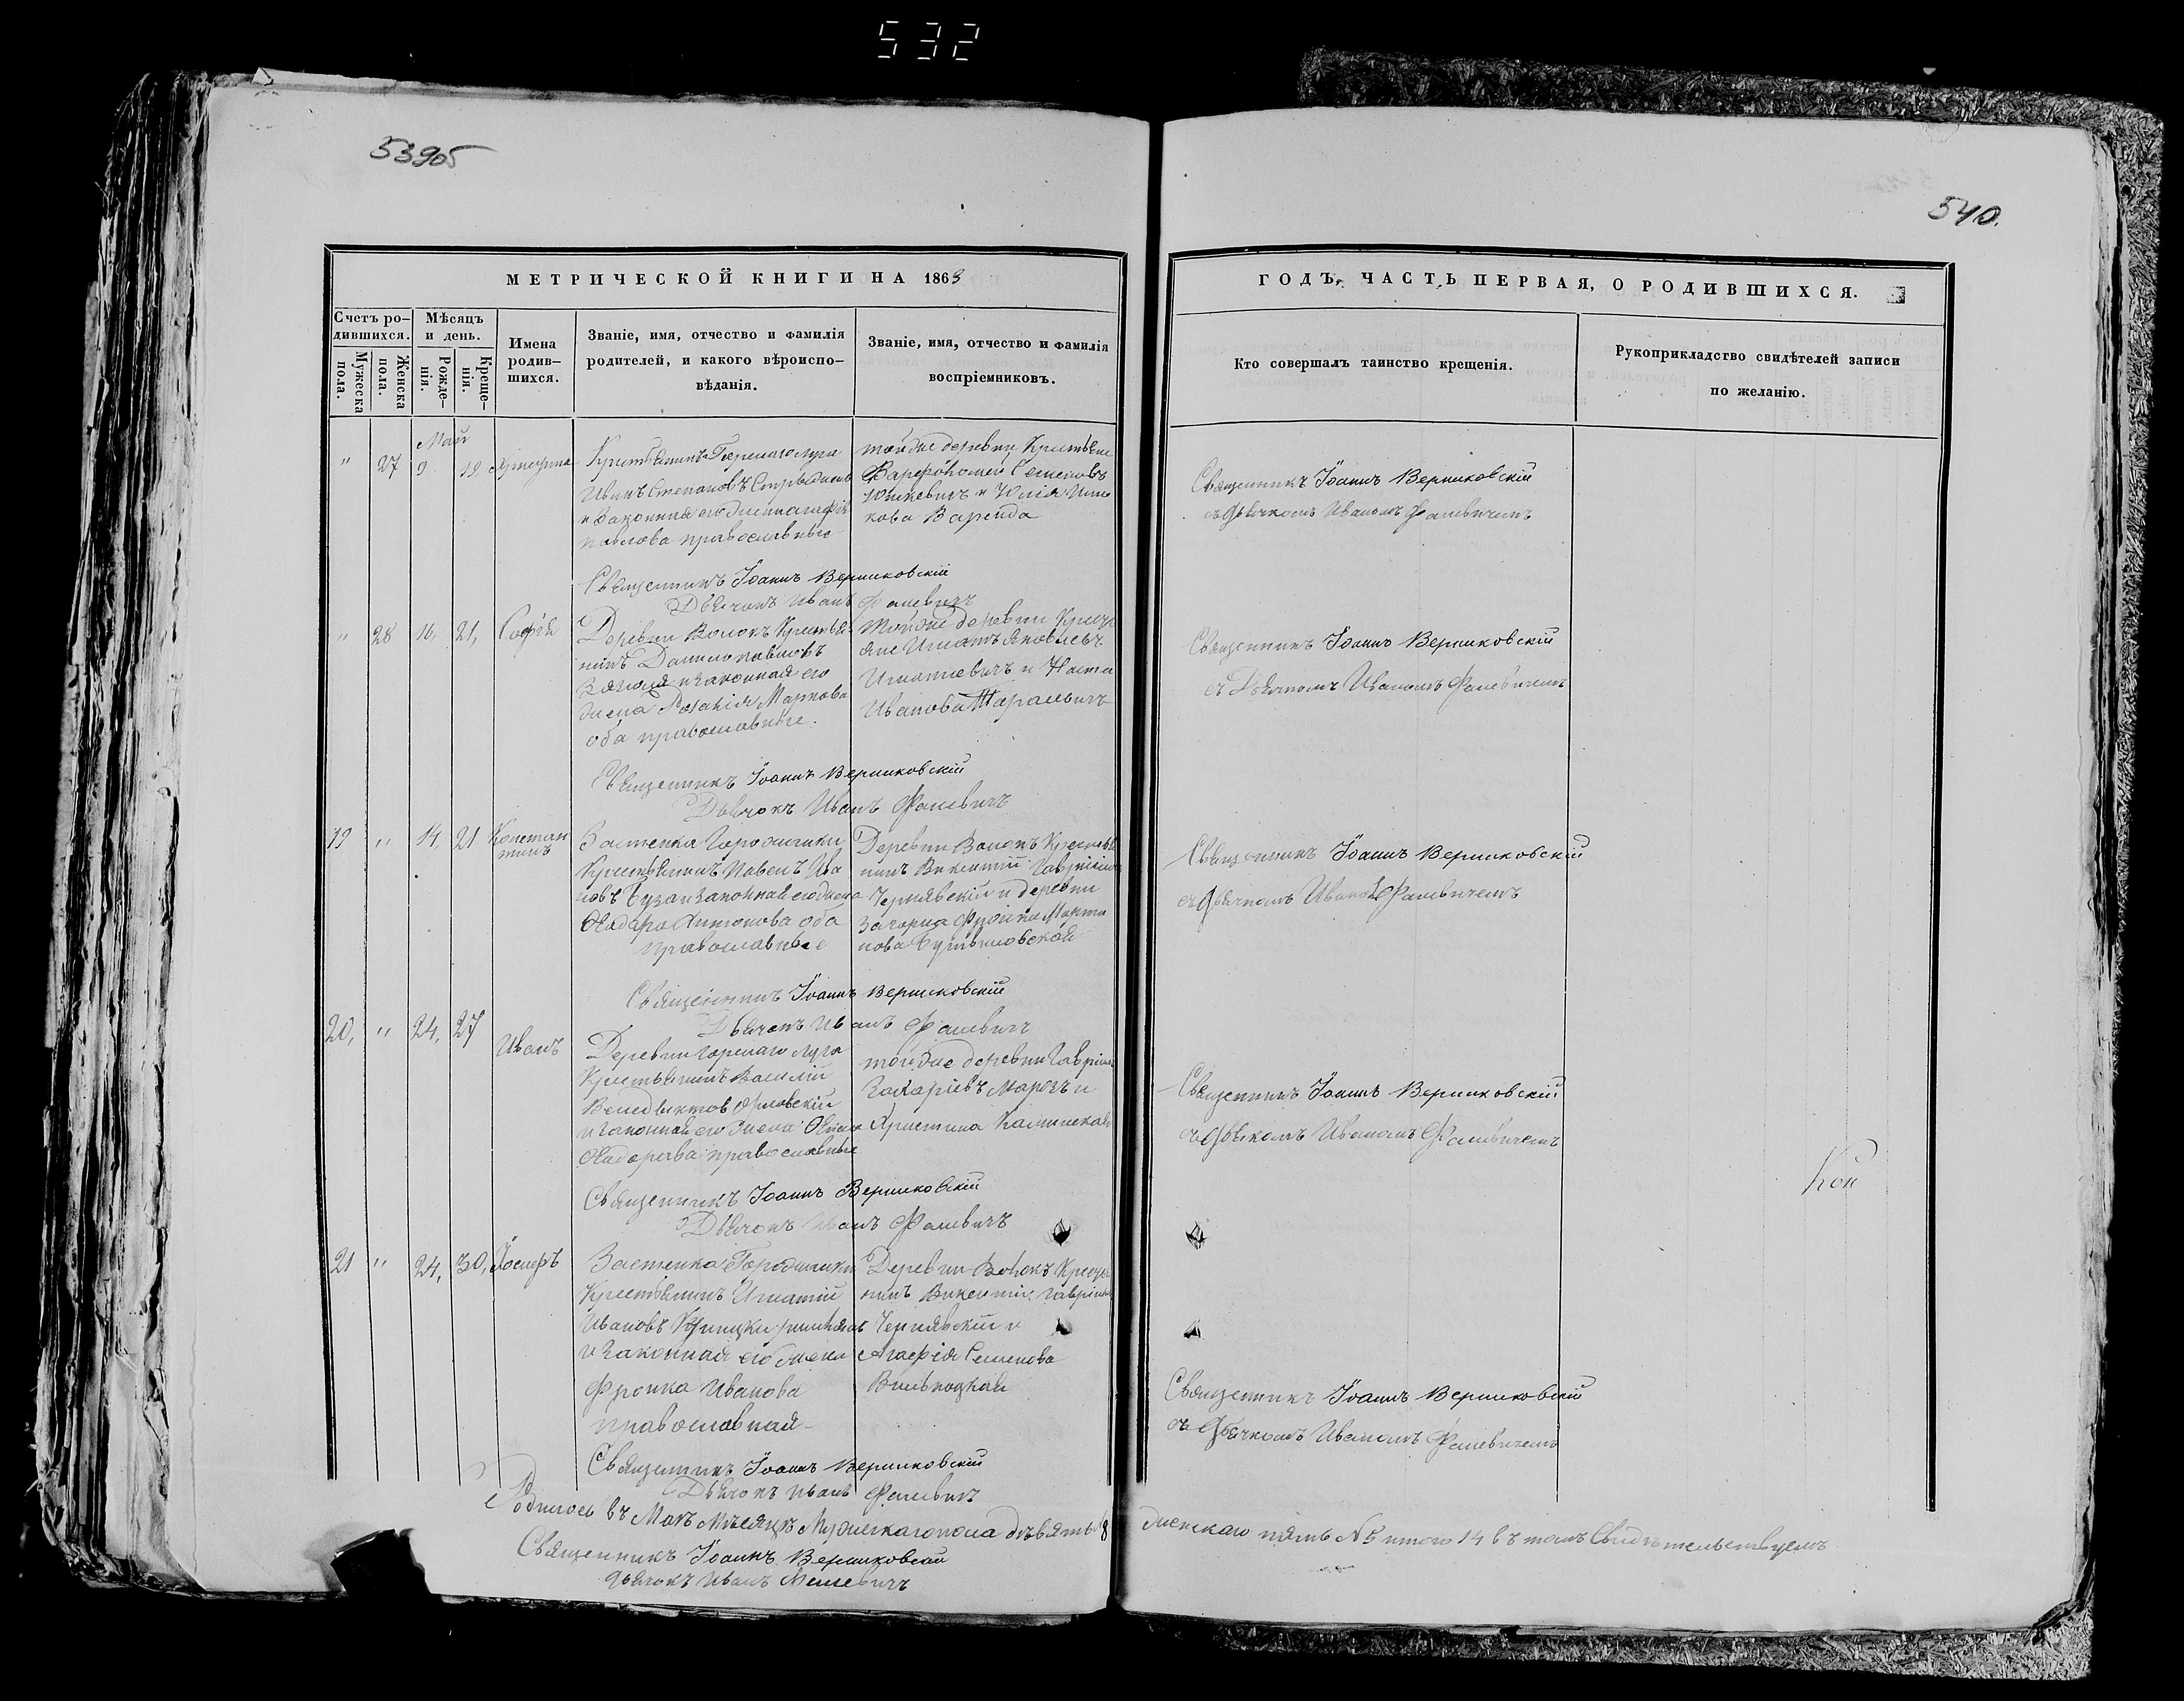 532
539об
540.
МЕТРИЧЕСКОЙ КНИГИ НА 1863
ГОДЪ, ЧАСТЬ ПЕРВАЯ, О РОДИВШИХСЯ.
Счетъ ро-
дившихся.
Мужеска
пола.
Женска
пола.
Мѣсяцъ
и день.
Рожде-
нія.
Креще-
нія.
Имена
родив-
шихся.
Званіе, имя, отчество и фамилія
родителей, и какого вѣроиспо-
вѣданія.
Званіе, имя, отчество и фамилія
воспріемниковъ.
Кто совершалъ таинство крещенія.
Рукоприкладство свидѣтелей записи
по желанію.
Май
" 27 9 19
Крестьянинъ Горенаго луга
Иванъ Степановъ
и законная его жена
павлова православные
тойже деревни Крестьяне
Варфоломей Семеновъ
Юшкевичъ и Юлія
кова Варейда
Священникъ Іоаннъ Вериковскій
съ Дьячкомъ Иваномъ Фалевичемъ
Священникъ Іоаннъ Вериковскій
Дьячокъ Иванъ Фалевичъ
" 28 16, 21, Софія
Деревни Волокъ Крестья-
нинъ Данило павловъ
и законная его
жена Розалія Маркова
оба православные.
тойже деревни Кресть
яне Игнатъ Яковлевъ
Игнатевичъ и Наста
Иванова Тарасевичъ
Священникъ Іоаннъ Вериковскій
съ Дьячкомъ Иваномъ Фалевичемъ
Священникъ Іоаннъ Вериковскій
Дьячокъ Иванъ Фалевичъ
19 " 14, 21 Констан
тинъ
Застенка Городищики
Крестьянинъ Павелъ Ива
новъ Буза и законная его жена
Ѳадора Антонова оба
православные
Деревни Волокъ Крестья
нинъ Викентій Гавріиловъ
Чернявскій и деревни
Загорца Марти
нова
Священникъ Іоаннъ Вериковскій
съ Дьячкомъ Иваномъ Фалевичемъ
Священникъ Іоаннъ Вериковскій
Дьячокъ Иванъ Фалевичъ
20, " 24, 27 Иванъ
Деревни Горенаго луга
Крестьянинъ Василій
Венедиктов Орловскій
и законная его жена
Ѳадорова православные
тойже деревни Гавріилъ
Захаріевъ Марозъ и
Христина Каминская
Священникъ Іоаннъ Вериковскій
съ Дьячкомъ Иваномъ Фалевичемъ
Священникъ Іоаннъ Вериковскій
Дьячокъ Иванъ Фалевичъ
21 " 24, 30, Іосифъ
Застенка Городищики
Крестьянинъ Игнатій
Ивановъ
и законная его жена
Фронка Иванова
православная
Деревни Волокъ Кресть
нинъ Викентій Гавріиловъ
Чернявскій и
Агафія Семенова
Священникъ Іоаннъ Вериковскій
съ Дьячкомъ Иваномъ Фалевичемъ
Священникъ Іоаннъ Вериковскій
Дьячокъ Иванъ Фалевичъ
Родилось въ Маѣ Мѣсяцѣ Мужескаго пола
женскаго пять №5 итого 14 въ томъ Свидѣтельствуемъ
Священникъ Іоаннъ Вериковскій
Дьячокъ Иванъ Фалевичъ